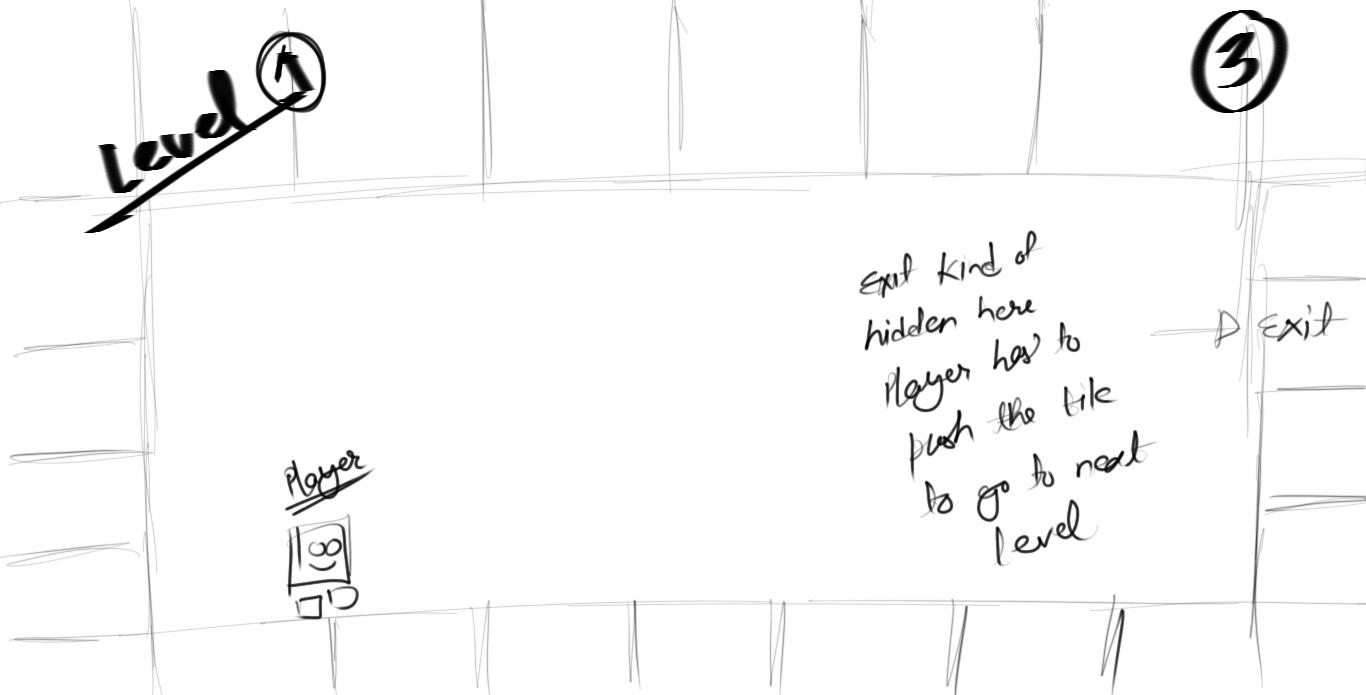 Level 1
3
Exit kind of
hidden here
Player has to
push the tile
to go to next
level
Exit
Player